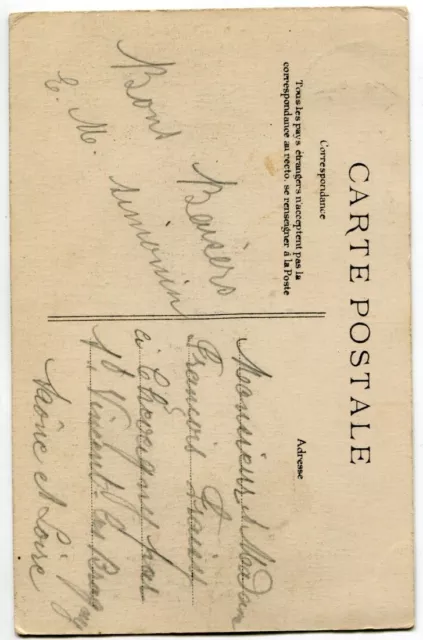 CARTE POSTALE
Correspondance
Tous les pays étrangers n'acceptent pas la
correspondance au recto, se renseigner à la Poste
Adresse
Bons Baisers
E. M. Simonin
Monsieur et Madam
François
à Chevagny par
St Vincent les Bragny
Saône et Loire